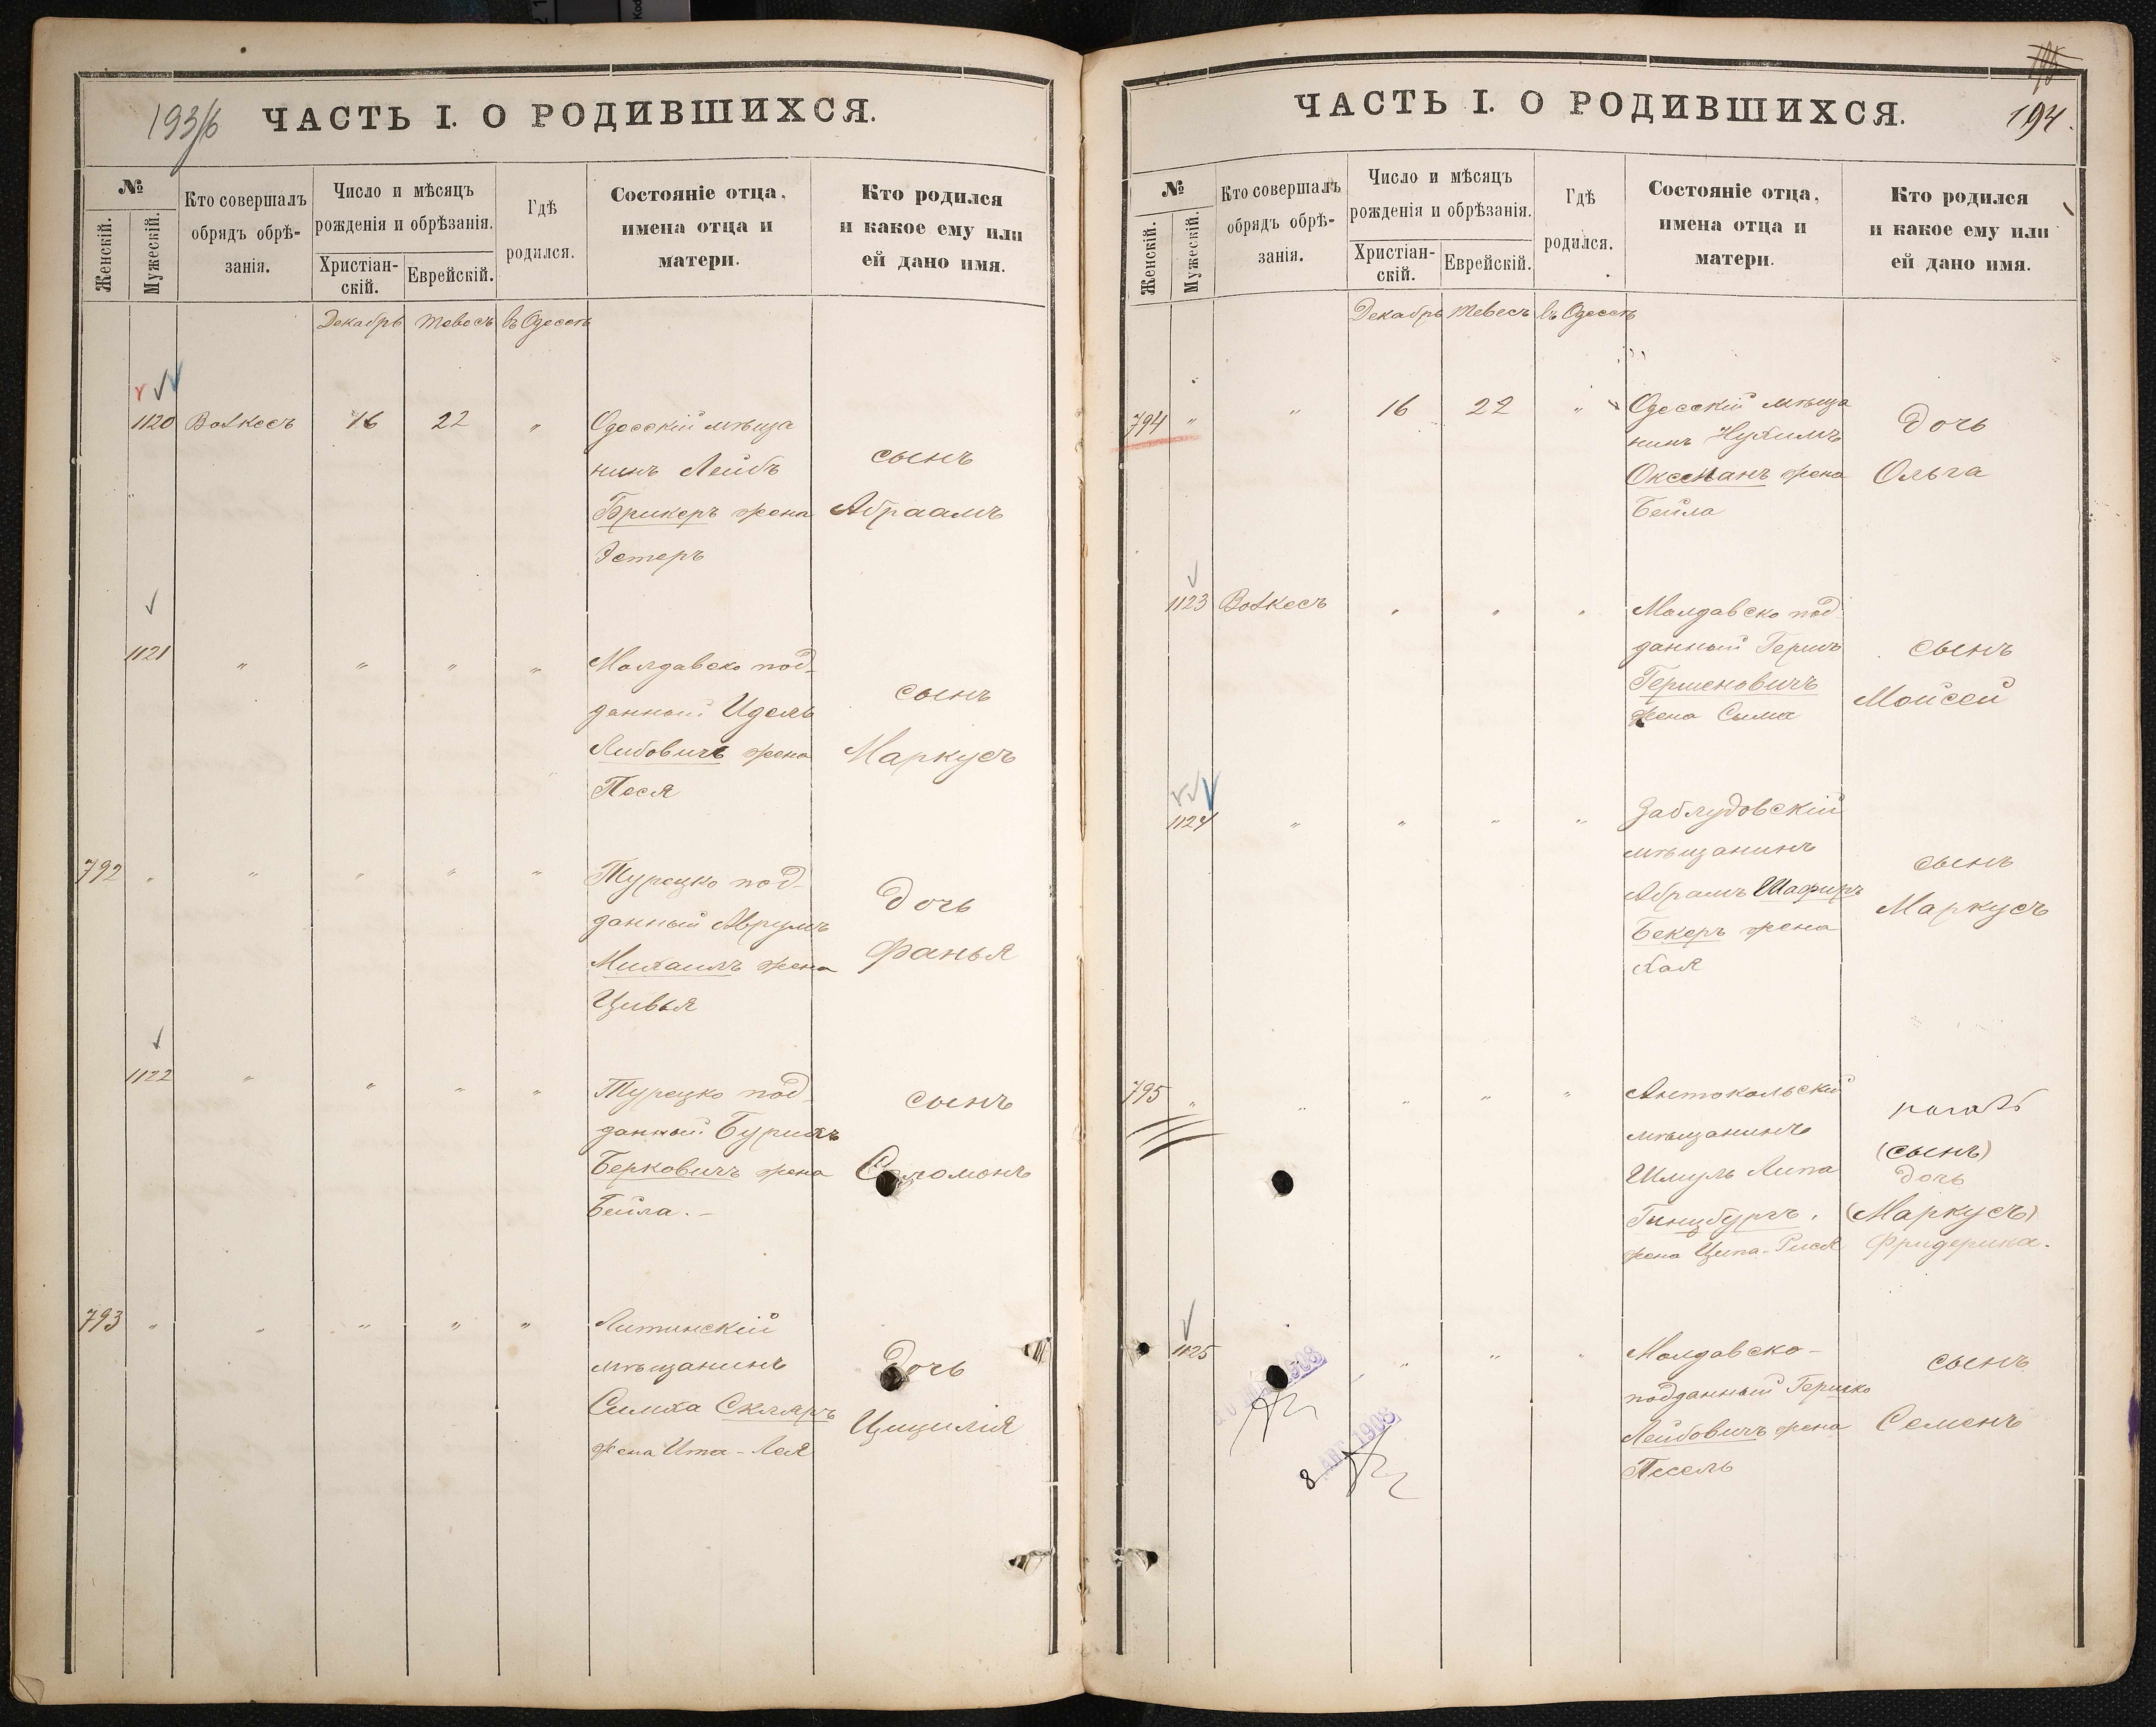 193/б
ЧАСТЬ I. О РОДИВШИХСЯ.
№
Женскій.
Мужескій.
Кто совершалъ
обрядъ обрѣ-
занія.
Число и мѣсяцъ
рожденія и обрѣзанія.
Христіан-
скій.
Еврейскій.
Гдѣ
родился.
Состояніе отца,
имена отца и
матери.
Кто родился
и какое ему или
ей дано имя.
Декабрь Тевесъ въ Одессѣ
1120 16 22 "
Одесскій мѣща
нинъ Лейбъ
Брикеръ жена
Эстеръ
сынъ
Абраамъ
1121 " " " "
Молдавско под-
данный Идель
Либовичъ жена
Песя
сынъ
Маркусъ
792 " " " " "
Турецко под-
данный Аврумъ
Михаилъ жена
Цивья
дочь
Фанья
1122 " " " "
Турецко под-
данный
Берковичъ жена
Бейла. -
сынъ
Соломонъ
793 " " " " "
Литинскій
мѣщанинъ
Симха Скляръ
жена Ита-Лея
дочь
Цицилія
194.
ЧАСТЬ I. О РОДИВШИХСЯ.
№
Женскій.
Мужескій.
Кто совершалъ
обрядъ обрѣ-
занія.
Число и мѣсяцъ
рожденія и обрѣзанія.
Христіан-
скій.
Еврейскій.
Гдѣ
родился.
Состояніе отца,
имена отца и
матери.
Кто родился
и какое ему или
ей дано имя.
Декабрь Тевесъ въ Одессѣ
794 " " 16 22 "
Одесскій мѣща
нинъ Нухимъ
Оксманъ жена
Бейла
дочь
Ольга
1123 " " "
Молдавско под
данный Гершъ
Гершеновичъ
жена Сыма
сынъ
Мойсей
1124 " " " "
Заблудовскій
мѣщанинъ
Абрамъ Шафиръ
Бекеръ жена
Хая
сынъ
Маркусъ
795 " " " " "
Антокольскій
мѣщанинъ
Шмуль Липа
Гинцбургъ,
жена Ципа-Рися
(сынъ)
дочь
(Маркусъ)
Фридерика.
1125 " " " "
Молдавско-
подданный Гершко
Лейбовичъ жена
Песель
сынъ
Семенъ
1908
8 АПР 1908